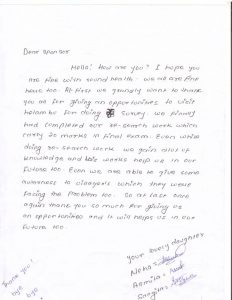 Dear sponser
Hello! How are you? I hope you
are fine with sound health. we all are fine
here too. At first we grandly want to thank
you all for giving an opportunities to visit
Kolambo for doing survey. we
and completed our re-search work which
carry 20 marks in final exam. Even while
doing re-search work we gain allot of
knowledge and this works help us in our
future too. Even we are able to give some
awareness to villagers which they were
facing the problem too. So at last once
again thank you so much for giving us
an opportunities and it will helps us in our
future too.
your lovely daughter
Neha
Asmita
Sangita
Thank you!
bye
bye